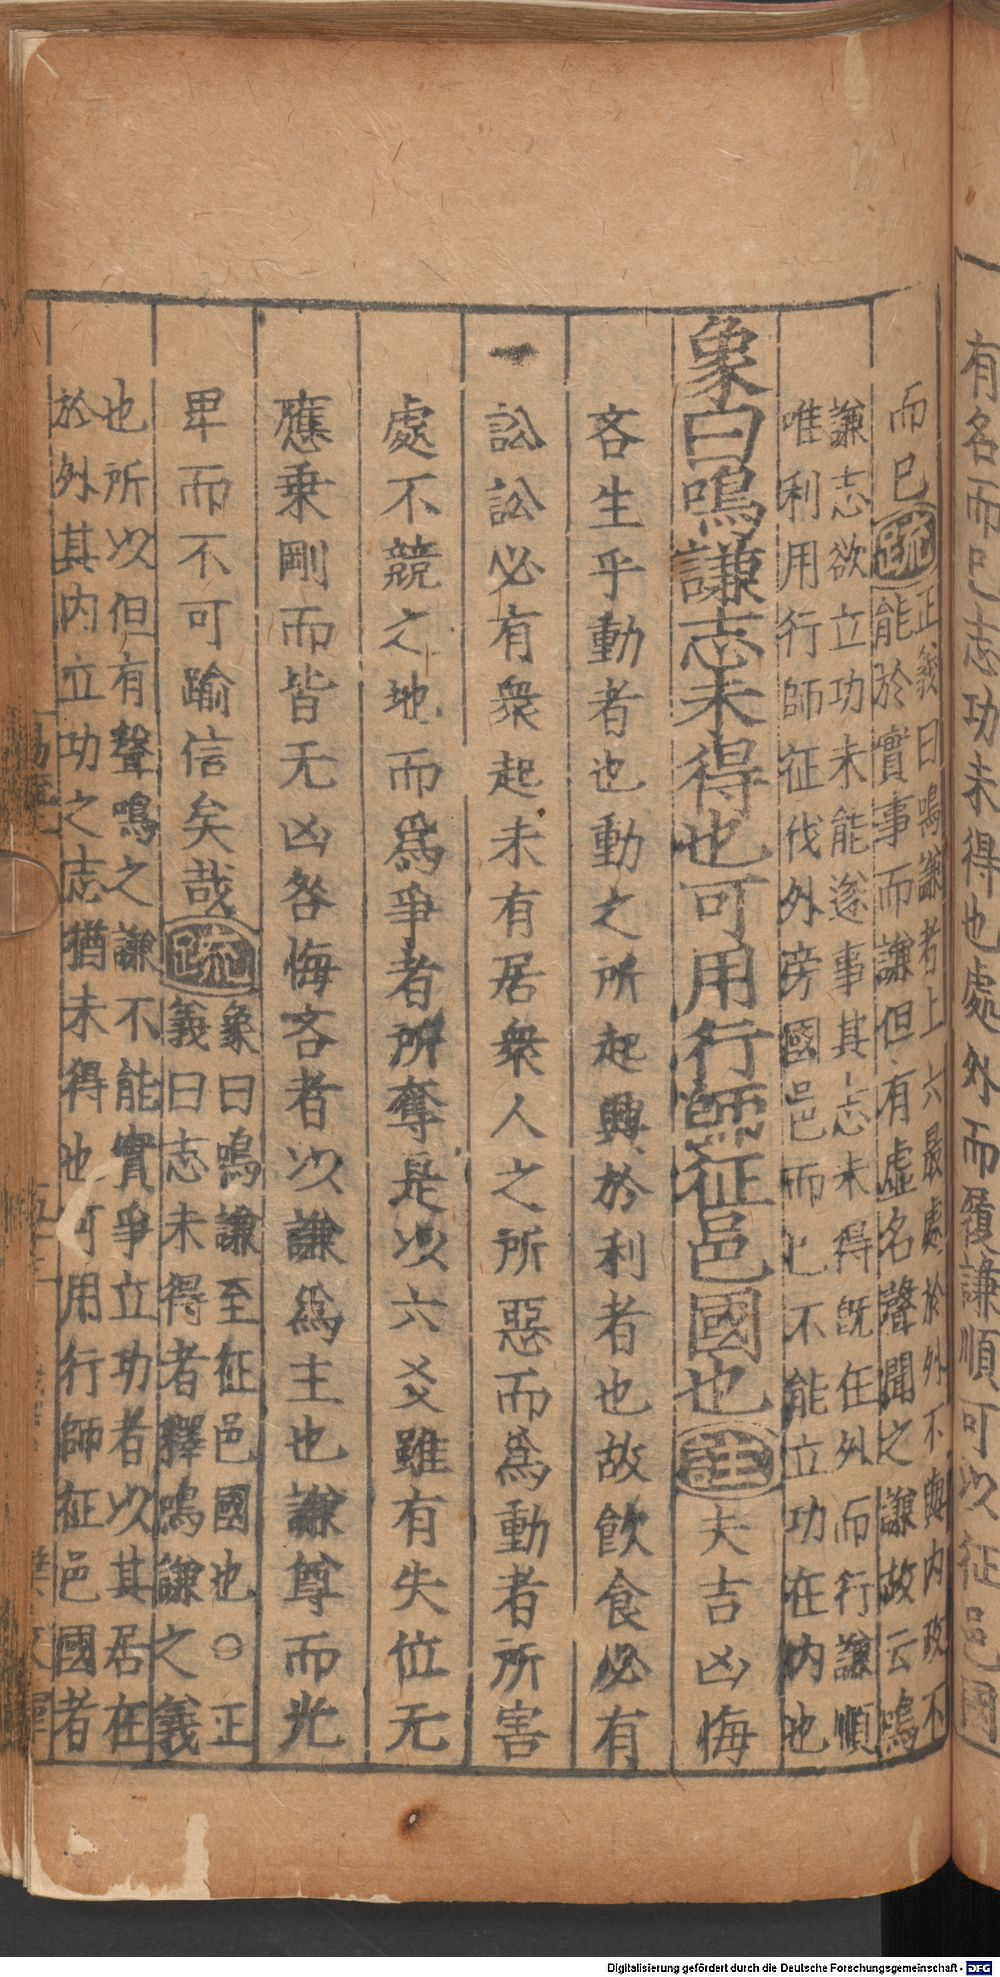 有名而已志功未得也處外而履謙順可以征邑國
而已疏正義曰鳴謙者上六最處於外不與內政不
能於實事而謙但有虛名聲聞之謙故云鳴
謙志欲立功未能遂事其志未得既在外而行謙順
唯利用行師征伐外旁國邑而已不能立功在內也
象曰鳴謙志未得也可用行師征邑國也註夫吉凶悔
吝生乎動者也動之所起興於利者也故飲食必有
訟訟必有衆起未有居衆人之所惡而爲動者所害
處不競之地而爲爭者所奪是以六爻雖有失位无
應乗剛而皆无凶咎悔吝者以謙爲主也謙尊而光
卑而不可踰信矣哉疏象曰鳴謙至征邑國也○正
義曰志未得者釋鳴謙之義
也所以但有聲鳴之謙不能實爭立功者以其居在
於外其內立功之志猶未得也可用行師征邑國者
Digitalisierung gefördert durch die Deutsche Forschungsgemeinschaft - DFG